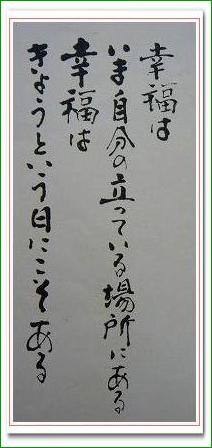 幸福は
いま自分の立っている場所にある
幸福は
きょうという日にこそある